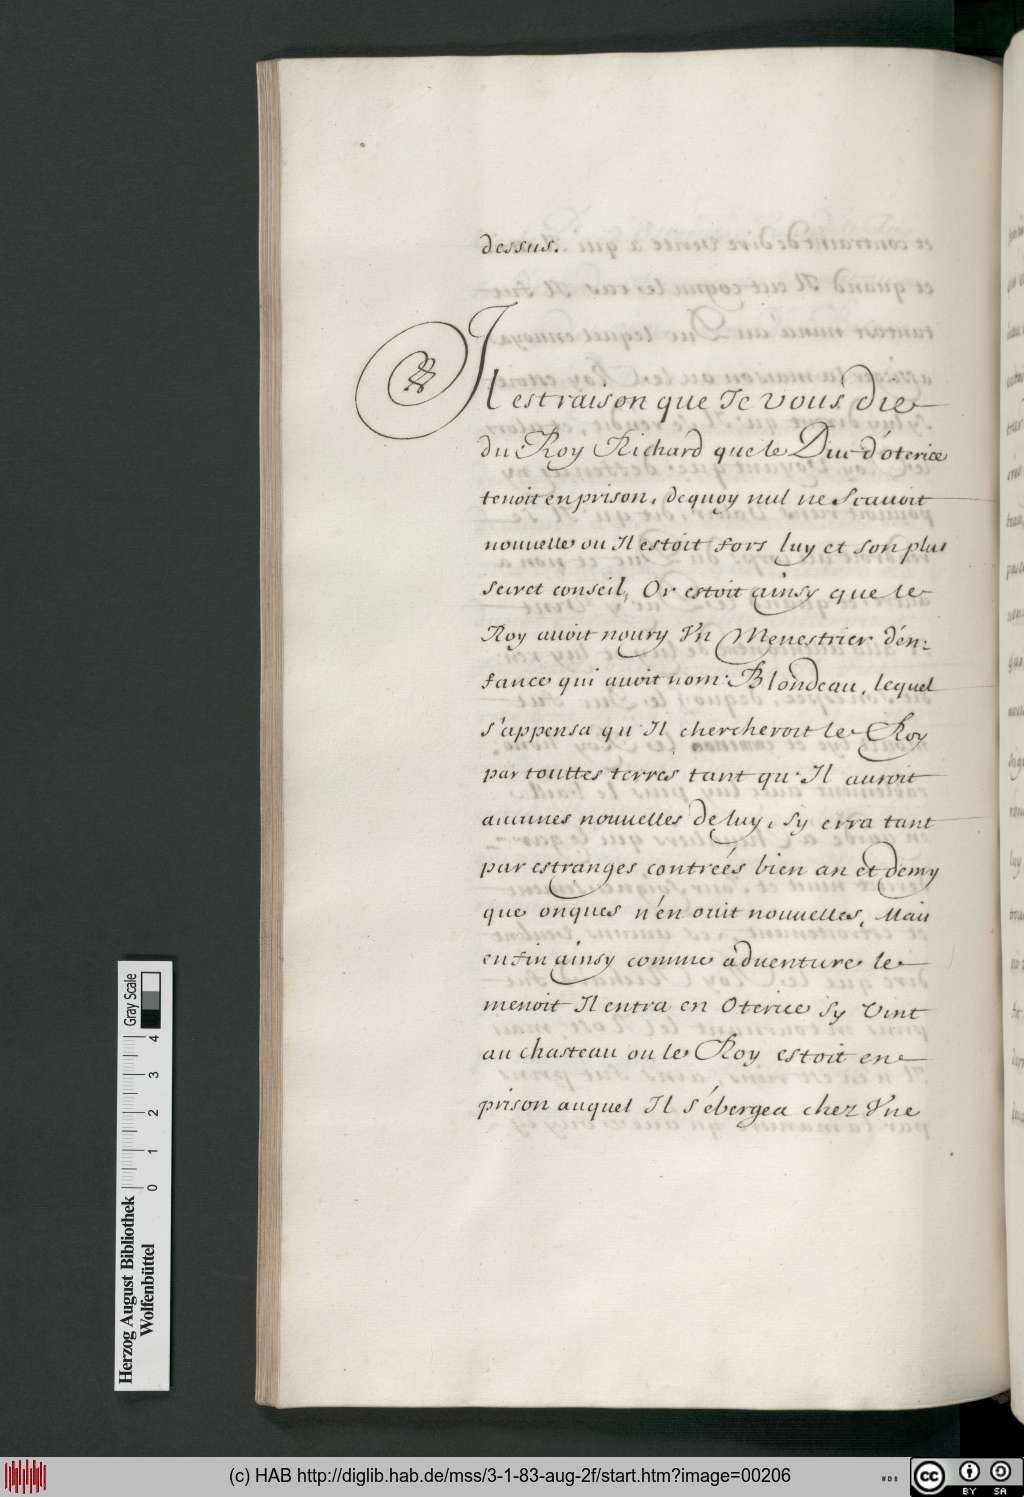 dessus.
Il est raison que Je vous die
du Roy Richard que le Duc d'oterice
tenoit en prison, dequoy nul ne scauoit
nouuelle ou Il estoit fors luy et son plus
secret conseil, Or estoit ainsy que le
Roy auoit noury Vn Menestrier d'en:
fance qui auoit nom Blondeau, lequel
s'appensa qu'Il chercheroit le Roy
par touttes terres tant qu'Il auroit
aucunes nouuelles de luy, sy erra tant
par estranges contreés bien an et demy
que onques n'en ouit nouuelles, Mais
enfin ainsy comme aduenture le
menoit Il entra en Oterice sy vint
au chasteau ou le Roy estoit en
prison auquel Il s'ébergea chez Vne
Herzog August Bibliothek
Wolfenbüttel
0 1 2 3 4
Gray Scale
(c) HAB http://diglib.hab.de/mss/3-1-83-aug-2f/start.htm?image=00206
WDB
cc BY SA